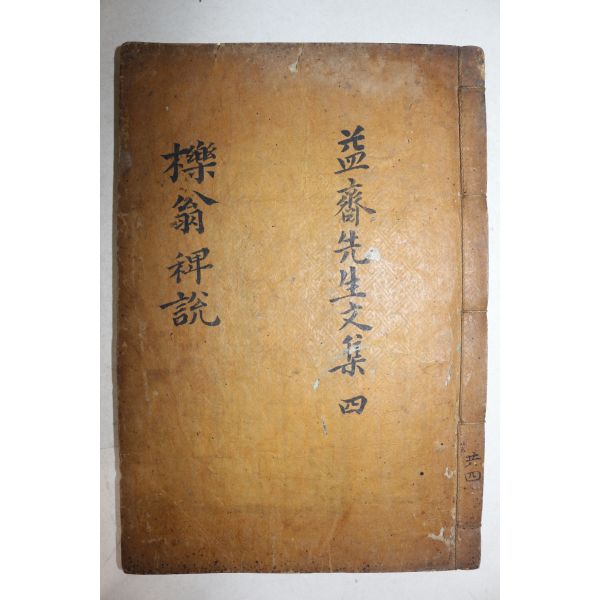 益齋先生文集 四
櫟翁稗說
共四